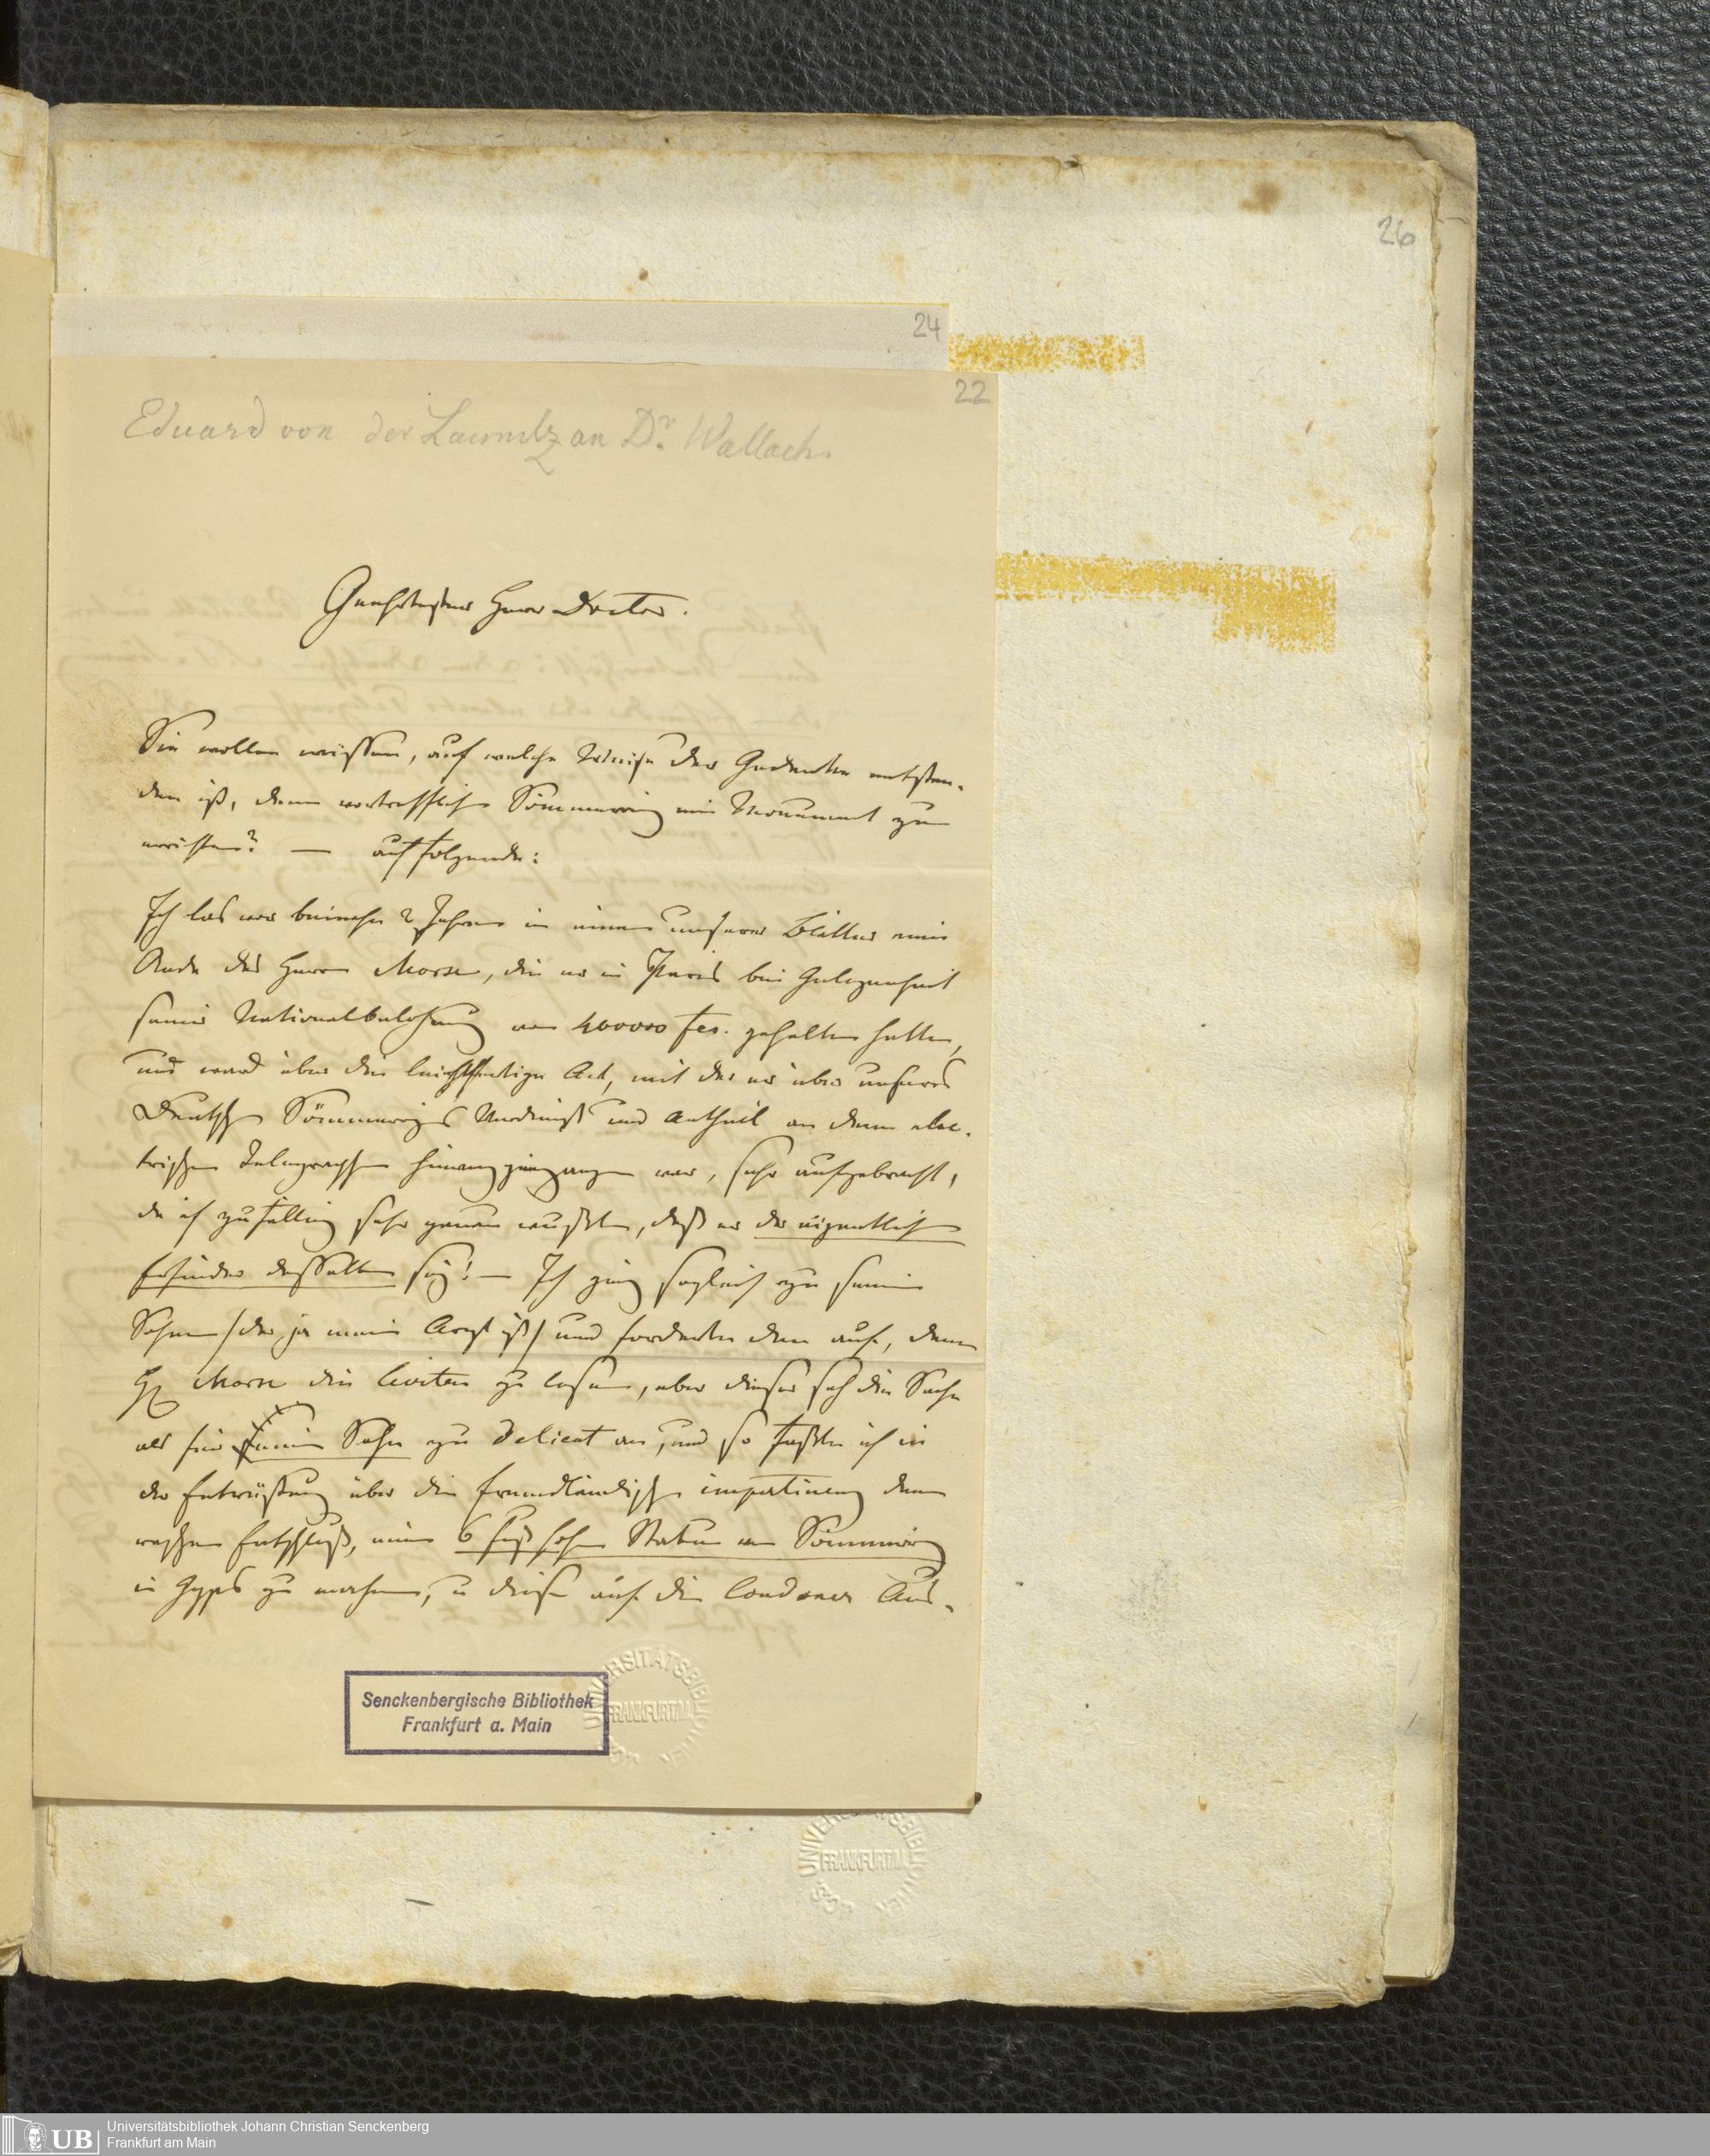 26
24
22
Eduard von der Launitz an Dr. Wallach.
Geehrtester Herr Doctor.
Sie wollen wissen, auf welche Weise der Gedanke entstan-
den ist, dem vortrefflichen Sömmerring ein Monument zu
errichten? — auf folgende:
Ich las vor beinahe 2 Jahren in einem unserer Blätter eine
Rede des Herrn Morse, die er in Paris bei Gelegenheit
seiner Nationalbelohnung von 400000 fcs. gehalten hatte,
und ward über die leichtfertige Art, mit der er über unseres
Deutschen Sömmerrings Verdienst und Antheil an dem elec-
trischen Telegraphen hinweggegangen war, sehr aufgebracht,
da ich zufällig sehr genau wußte, daß er der eigentliche
Erfinder desselben sey! — Ich ging sogleich zu seinem
Sohne /der ja mein Arzt ist/ und forderte den auf, dem
H. Morse die Leviten zu lesen, aber dieser sah die Sache
als für seinen Sohn zu delicat an, und so faßte ich in
der Entrüstung über die fremdländische impertinenz den
raschen Entschluß, eine 6 fuß hohe Statue von Sömmerring
in Gyps zu machen, u diese auf die Londoner Aus-
Senckenbergische Bibliothek
Frankfurt a. Main
UNIVERSITÄTSBIBLIOTHEK
FRANKFURT/M.
UNIVERSITÄTSBIBLIOTHEK
FRANKFURT/M.
UB
Universitätsbibliothek Johann Christian Senckenberg
Frankfurt am Main